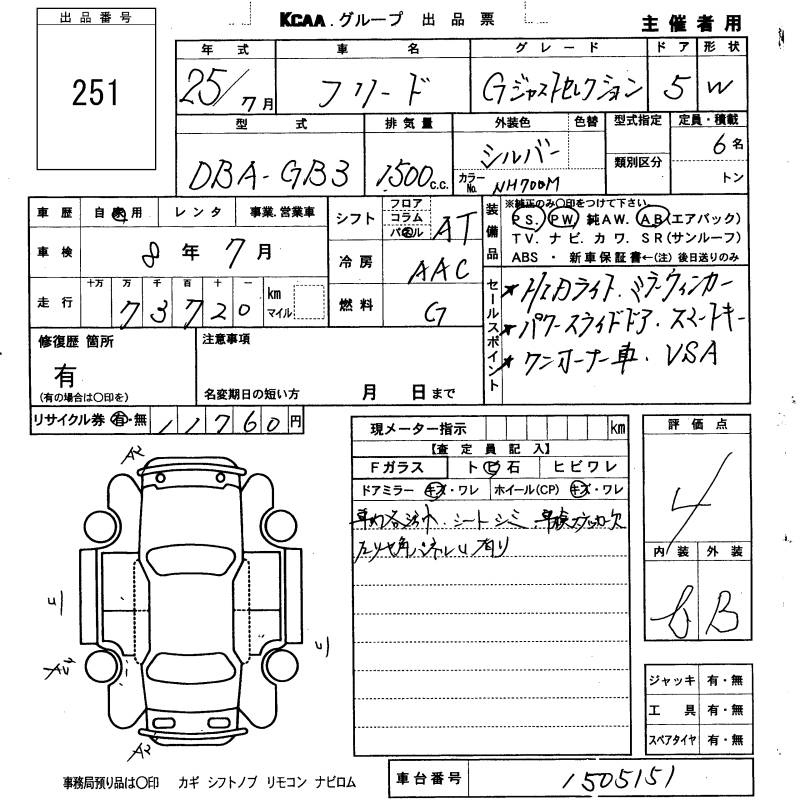 出品番号
251
KCAA.グループ 出品票
主催者用
年式 車名 グレード ドア 形状
25/7月 フリード Gジャストセレクション 5 W
型式 排気量 外装色 色替 型式指定 定員・積載
DBA-GB3 1500c.c. シルバー 6名
カラーNo. NH700M 類別区分 トン
車歴 自家用 レンタ 事業.営業車
車検 8年7月
走行 十万 万 千 百 十 一
73720 km マイル
シフト フロア コラム パネル AT
冷房 AAC
燃料 G
装備品 ※純正のみ○印をつけて下さい
PS. PW 純AW. AB(エアバック)
TV. ナビ. カワ. SR(サンルーフ)
ABS ・ 新車保証書←(注)後日送りのみ
セールスポイント
★HIDライト.ミラーウィンカー
★パワースライドドア.スマートキー
★ワンオーナー車.VSA
修復歴 箇所
有
(有の場合は○印を)
注意事項
名変期日の短い方 月 日まで
リサイクル券 有・無 11760円
現メーター指示 km
【査定員記入】
Fガラス トビ石 ヒビワレ
ドアミラー キズ・ワレ ホイール(CP) キズ・ワレ
シートシミ
有り
評価点
4
内装 外装
B
A2
A2
ジャッキ 有・無
工具 有・無
スペアタイヤ 有・無
事務局預り品は○印 カギ シフトノブ リモコン ナビロム
車台番号 1505151